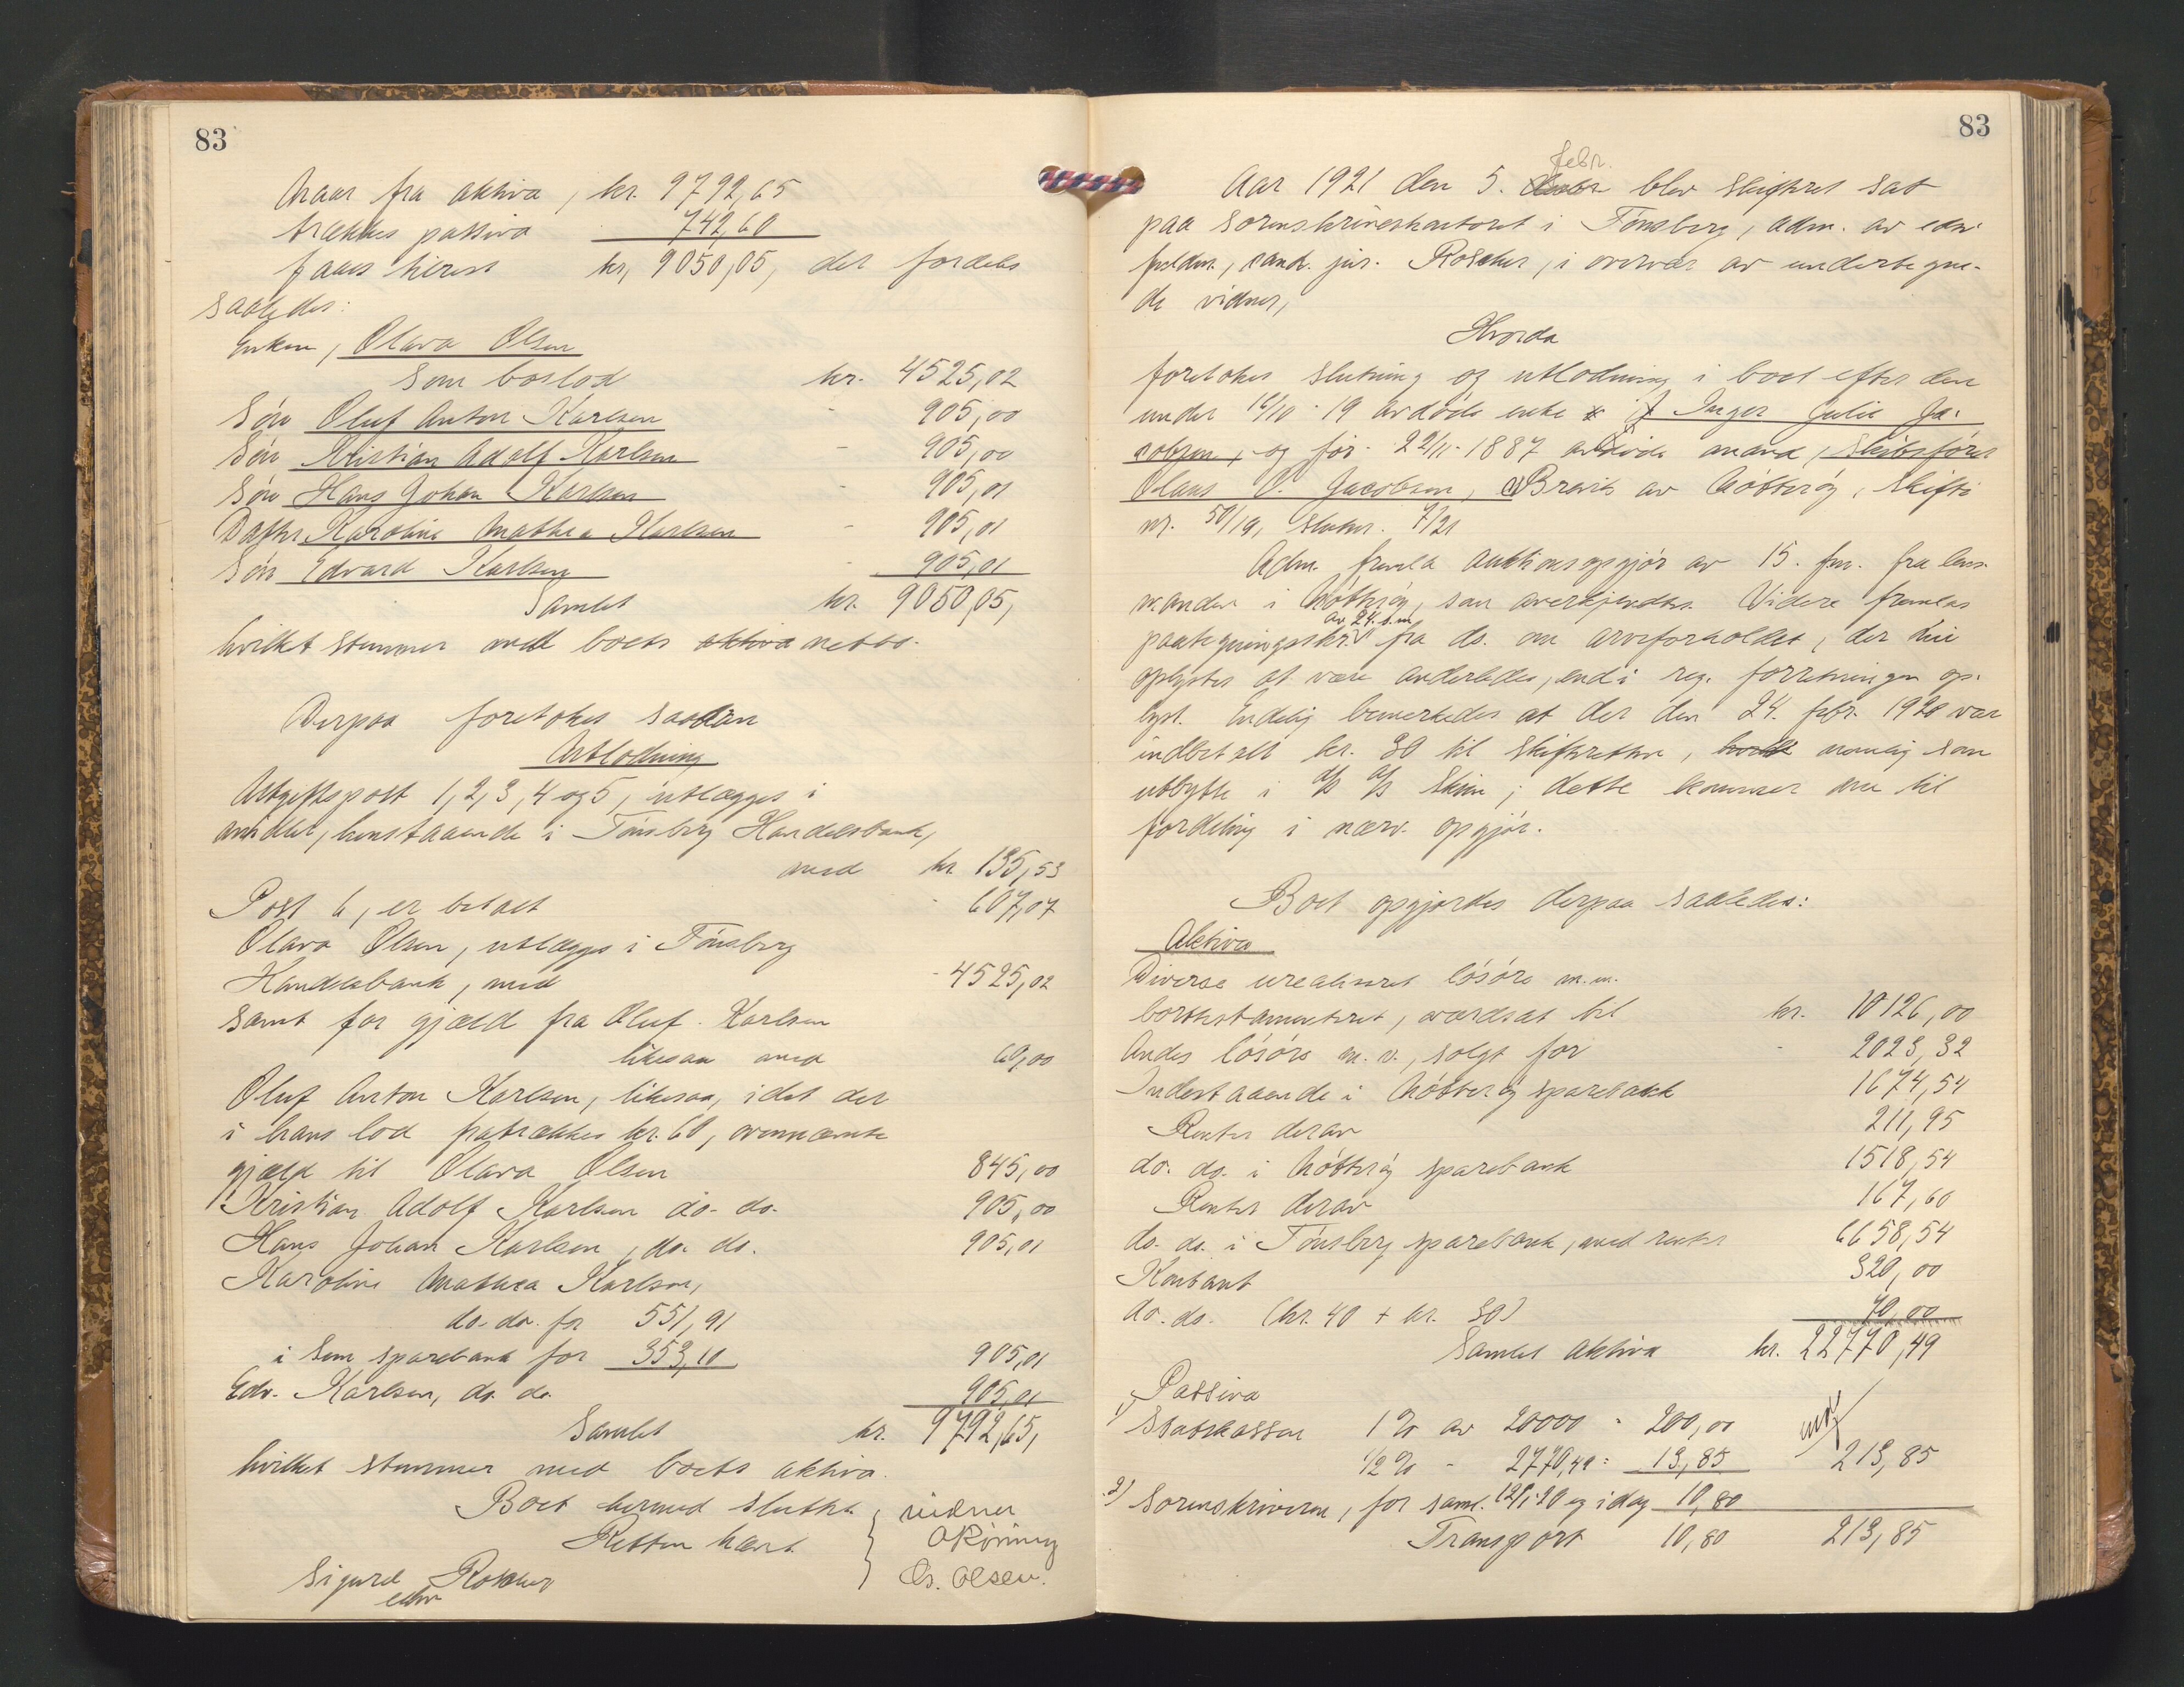 83
Naar fra aktiva, kr. 9792,65
trækkes passiva 742,60
faaes tilrest kr. 9050,05, der fordeles
saaledes:
Enken, Olava Olsen
som boslod kr. 4525,02
Søn Oluf Anton Karlsen - 905,00
Søn Kristian Adolf Karlsen - 905,00
Søn Hans Johan Karlsen - 905,01
Datter Karoline Mathea Karlsen - 905,01
Søn Edvard Karlsen - 905,01
Samlet kr. 9050,05,
hvilket stemmer med boets aktiva netto.
Derpaa foretokes saadan
Utlodning
Utgiftspost 1, 2, 3, 4 og 5, utlægges i
midler, henstaaende i Tønsberg Handelsbank,
med kr. 135,53
Post 6, er betalt - 607,07
Olava Olsen, utlægges i Tønsberg
Handelsbank, med - 4525,02
samt for gjæld fra Oluf Karlsen
likesaa med 60,00
Oluf Anton Karlsen, likesaa, idet der
i hans lod fratrækkes kr. 60, ovennævnte
gjæld til Olava Olsen 845,00
Kristian Adolf Karlsen do. do. 905,00
Hans Johan Karlsen, do. do. 905,01
Karoline Mathea Karlsen,
do. do. for 551,91
i Sem sparebank for 353,10 905,01
Edv. Karlsen, do. do. 905,01
Samlet kr. 9792,65,
hvilket stemmer med boets aktiva.
Boet hermed sluttet
Retten hævt
Sigurd Roscher
edsv.
vidner
O Rönning
Chr. Olsen.
83
Aar 1921 den 5. Febr. blev skifteret sat
paa sorenskriverkontoret i Tønsberg, adm. av edsv.
fuldm., cand. jur. Roscher, i overvær av undertegne-
de vidner,
Hvorda
foretokes slutning og utlodning i boet efter den
under 12/10 - 19 avdøde enke Inger Julie Ja-
cobsen, og før 22/11 1887 avdøde mand, skibsfører
Olaus O. Jacobsen, Brevik av Nøtterøy, skifte
nr. 50/19, slutnr. 7/21
Adm. fremla auktionsopgjør av 15. f.m. fra lens-
manden i Nøtterøy, som anerkjendtes. Videre fremlas
paategningsskr. av 24. s.m. fra do. om arveforholdet, der nu
oplystes at være anderledes, end i reg. forretningen op-
lyst. Endelig bemerkedes at der den 24. febr. 1920 var
indbetalt kr. 30 til skifteretten, nemlig som
utbytte i A/S Skim; dette kommer nu til
fordeling i nærv. opgjør.
Boet opgjordes derpaa saaledes:
Aktiva
Diverse urealiseret løsøre m.m.
borttestamenteret, værdsat til kr. 10126,00
Andet løsøre m.v., solgt for - 2023,32
Indestaaende i Nøtterøy sparebank 1674,54
Renter derav 211,95
do. do. i Nøtterøy sparebank 1518,54
Renter derav 167,60
do. do. i Tønsberg sparebank, med renter 6658,54
Kontant 320,00
do. do. (kr. 40 + kr. 30) 70,00
Samlet aktiva kr. 22770,49
Passiva
1) Statskassen 1 % av 20000 = 200,00
1/2 % - 2770,49 = 13,85 213,85
2) Sorenskriveren, for saml. 12/1-20 og idag 10,80
Transport 10,80 213,85